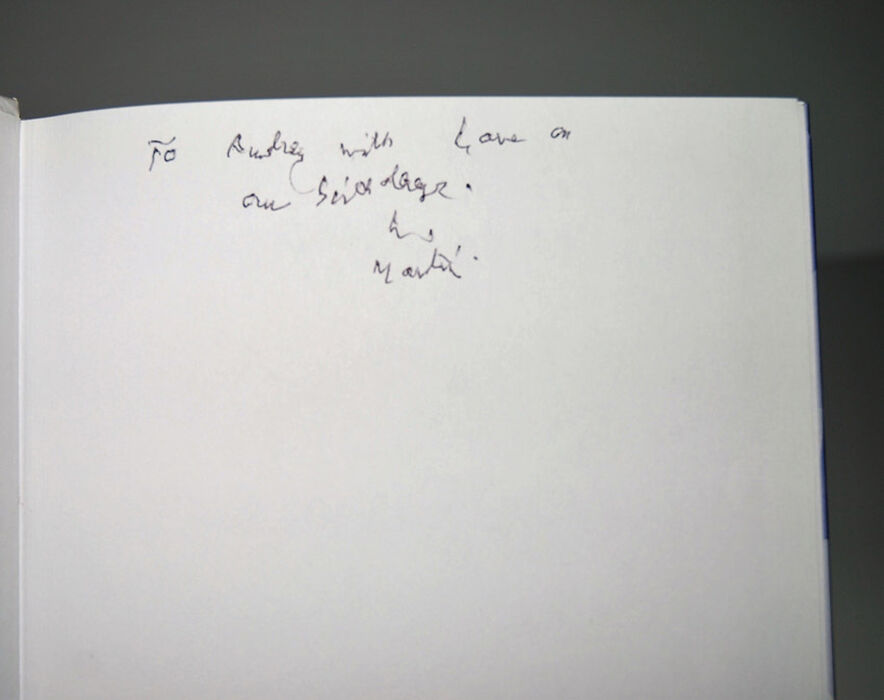 To Audrey with Love on
our
Martin.